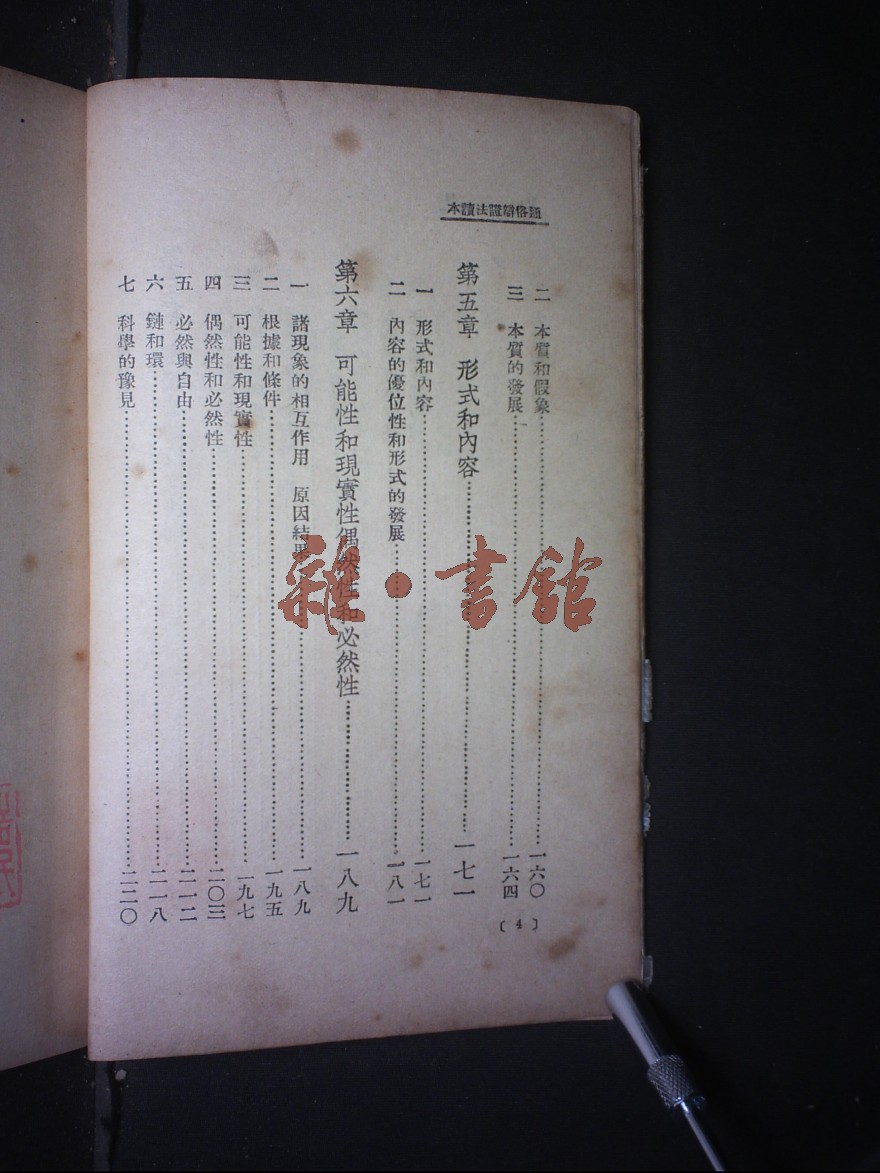 通俗辯證法讀本
二 本質和假象……一六〇
三 本質的發展……一六四
〔4〕
第五章 形式和內容……一七一
一 形式和內容……一七一
二 內容的優位性和形式的發展……一八一
第六章 可能性和現實性偶然性和必然性……一八九
一 諸現象的相互作用 原因結果……一八九
二 根據和條件……一九五
三 可能性和現實性……一九七
四 偶然性和必然性……二〇三
五 必然與自由……二一二
六 鏈和環……二一八
七 科學的豫見……二二〇
雜·書館